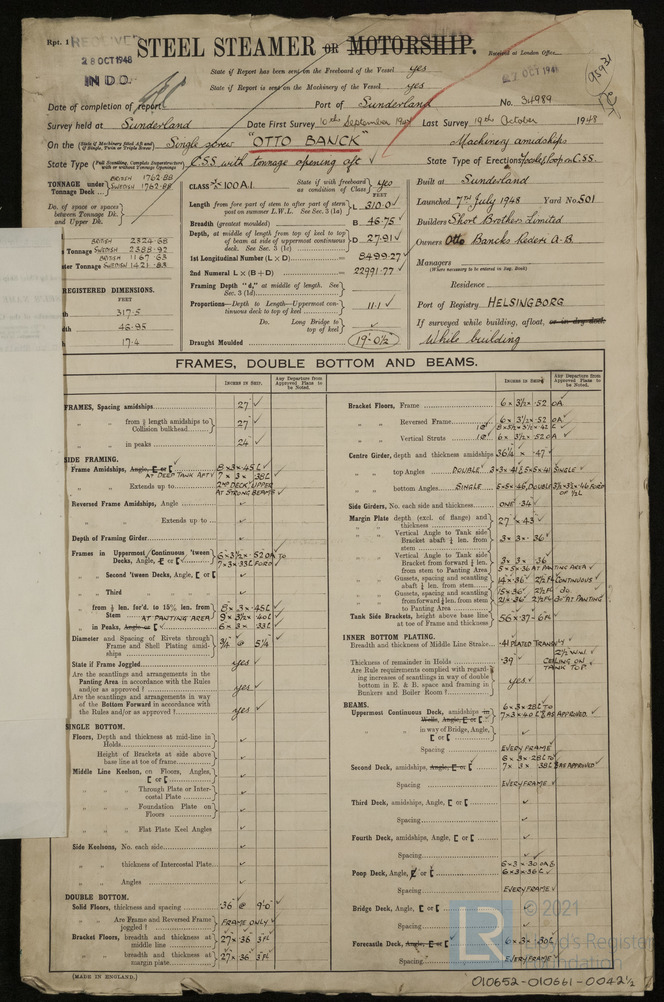 Rpt. 1
RECEIVED
28 OCT 1948
IN D.O.
STEEL STEAMER OR MOTORSHIP.
Received at London Office
27 OCT 1948
95931
State if Report has been sent on the Freeboard of the Vessel yes
State if Report is sent on the Machinery of the Vessel yes
Date of completion of report
Port of Sunderland
No. 34989
Survey held at Sunderland
Date First Survey 10th September 1947
Last Survey 19th October 1948
On the (State if Machinery fitted Aft and if Single, Twin or Triple Screw) Single screw "OTTO BANCK" Machinery amidships
State Type (Full Scantling, Complete Superstructure with or without Tonnage Openings) C.S.S. with tonnage opening aft
State Type of Erections Focsle & Poop on C.S.S.
TONNAGE under Tonnage Deck
BRITISH 1762.88
SWEDISH 1762.88
Do. of space or spaces between Tonnage Dk. and Upper Dk.
BRITISH 2324.68
Tonnage SWEDISH 2388.92
BRITISH 1167.63
ster Tonnage SWEDISH 1421.83
REGISTERED DIMENSIONS.
FEET
317.5
46.95
17.4
CLASS 100A.1.
State if with freeboard as condition of Class yes
FEET
Length from fore part of stem to after part of stern post on summer L.W.L. See Sec. 3 (1a) L 310.0
Breadth (greatest moulded) B 46.75
Depth, at middle of length from top of keel to top of beam at side of uppermost continuous deck. See Sec. 3 (1c) D 27.91
1st Longitudinal Number (L × D) 8499.27
2nd Numeral L × (B + D) 22991.77
Framing Depth "d," at middle of length. See Sec. 3 (1d)
Proportions—Depth to Length—Uppermost continuous deck to top of keel 11.1
Do. Long Bridge to top of keel
Draught Moulded 19'-0½"
Built at Sunderland
Launched 7th July 1948 Yard No. 501
Builders Short Brothers Limited
Owners Otto Bancks Rederi A.B.
Managers
(Where necessary to be entered in Reg. Book)
Residence
Port of Registry HELSINGBORG
If surveyed while building, afloat, or in dry dock.
While building
FRAMES, DOUBLE BOTTOM AND BEAMS.
INCHES IN SHIP.
Any Departure from Approved Plans to be Noted.
FRAMES, Spacing amidships 27"
" " from ⅕ length amidships to Collision bulkhead 27"
" " in peaks 24"
SIDE FRAMING.
Frame Amidships, Angle, E or [ 8 × 3 × .45 L
AT DEEP TANK AFT 7 × 3 × .38L
" " Extends up to 2ND DECK, UPPER AT STRONG BEAMS
Reversed Frame Amidships, Angle
" " Extends up to
Depth of Framing Girder
Frames in Uppermost Continuous 'tween Decks, Angle, E or [ 6×3½×.52 OA TO
7×3×.33L FORD
" " Second 'tween Decks, Angle, [ or [
" " Third " "
" " from ⅕ len. for'd. to 15% len. from Stem 8×3×.45L
AT PANTING AREA 9×3½×.40L
" " in Peaks, Angle or [ 6×3×.33L
Diameter and Spacing of Rivets through Frame and Shell Plating amidships ¾" @ 5¼"
State if Frame Joggled yes
Are the scantlings and arrangements in the Panting Area in accordance with the Rules and/or as approved? yes
Are the scantlings and arrangements in way of the Bottom Forward in accordance with the Rules and/or as approved? yes
SINGLE BOTTOM.
Floors, Depth and thickness at mid-line in Holds
Height of Brackets at side above base line at toe of frame
Middle Line Keelson, on Floors, Angles, [ or [
" " Through Plate or Intercostal Plate
" " Foundation Plate on Floors
" " Flat Plate Keel Angles
Side Keelsons, No. each side
" " thickness of Intercostal Plate
" " Angles
DOUBLE BOTTOM.
Solid Floors, thickness and spacing .36 @ 9'0"
" " Are Frame and Reversed Frame joggled? FRAME ONLY
Bracket Floors, breadth and thickness at middle line 27×.36 3 FL
" " breadth and thickness at margin plate 27×.36 3 FL
INCHES IN SHIP.
Any Departure from Approved Plans to be Noted.
Bracket Floors, Frame 6×3½×.52 OA
" " Reversed Frame 6×3½×.52 OA
" " Vertical Struts 6×3½×.52 OA
Centre Girder, depth and thickness amidships 36¼ × .47
" " top Angles DOUBLE SINGLE
" " bottom Angles SINGLE 5×5×.46, DOUBLE 3½×3½×.46 FORD OF ½L
Side Girders, No. each side and thickness ONE .34
Margin Plate depth (excl. of flange) and thickness 27 × .43
" " Vertical Angle to Tank side Bracket abaft ¼ len. from stem 3×3×.36
" " Vertical Angle to Tank side Bracket from forward ¼ len. from stem to Panting Area 3×3×.36
5×5×.36 AT PANTING AREA
" " Gussets, spacing and scantling abaft ¼ len. from stem 14×.36 2½ FL CONTINUOUS
" " Gussets, spacing and scantling from forward ¼ len. from stem to Panting Area 15×.36 2½ FL do.
21×.36 2½ FL AT PANTING
Tank Side Brackets, height above base line at toe of Frame and thickness 56×.37-6 FL
INNER BOTTOM PLATING.
Breadth and thickness of Middle Line Strake .41 PLATED TRANSV'Y
Thickness of remainder in Holds .39 2½" W.W. CEILING ON TANK TOP.
Are Rule requirements complied with regarding increases of scantlings in way of double bottom in E. & B. space and framing in Bunkers and Boiler Room? yes
BEAMS.
Uppermost Continuous Deck, amidships in Wells, Angle, [ or [ 6×3×.28L TO
7×3×.40L AS APPROVED.
" " in way of Bridge, Angle, [ or [
Spacing EVERY FRAME
Second Deck, amidships, Angle, E or [ 6×3×.28L TO
7×3×.38L AS APPROVED
Spacing EVERY FRAME
Third Deck, amidships, Angle, [ or [
Spacing
Fourth Deck, amidships, Angle, [ or [
Spacing
Poop Deck, Angle, [ or [ 6×3×.30 OAS
6×3×.36L
Spacing EVERY FRAME
Bridge Deck, Angle, [ or [
Spacing
Forecastle Deck, Angle, E or [ 6×3×.30L
Spacing EVERY FRAME
(MADE IN ENGLAND.)
LR © 2021
Lloyd's Register
Foundation
010652-010661-0042 ½